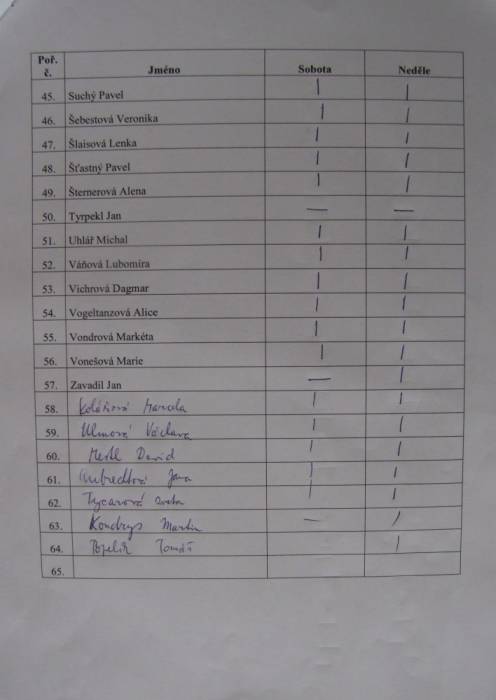 Poř. č. Jméno Sobota Neděle
45. Suchý Pavel | |
46. Šebestová Veronika | |
47. Šlaisová Lenka | |
48. Šťastný Pavel | |
49. Šternerová Alena | |
50. Tyrpekl Jan — —
51. Uhlář Michal | |
52. Váňová Lubomíra | |
53. Vichrová Dagmar | |
54. Vogeltanzová Alice | |
55. Vondrová Markéta | |
56. Vonešová Marie | |
57. Zavadil Jan — |
58. Kolářová Marcela | |
59. Ulmová Václava | |
60. David | |
61. Jana | |
62. | |
63. Kondrys Martin — |
64. Tomáš |
65.